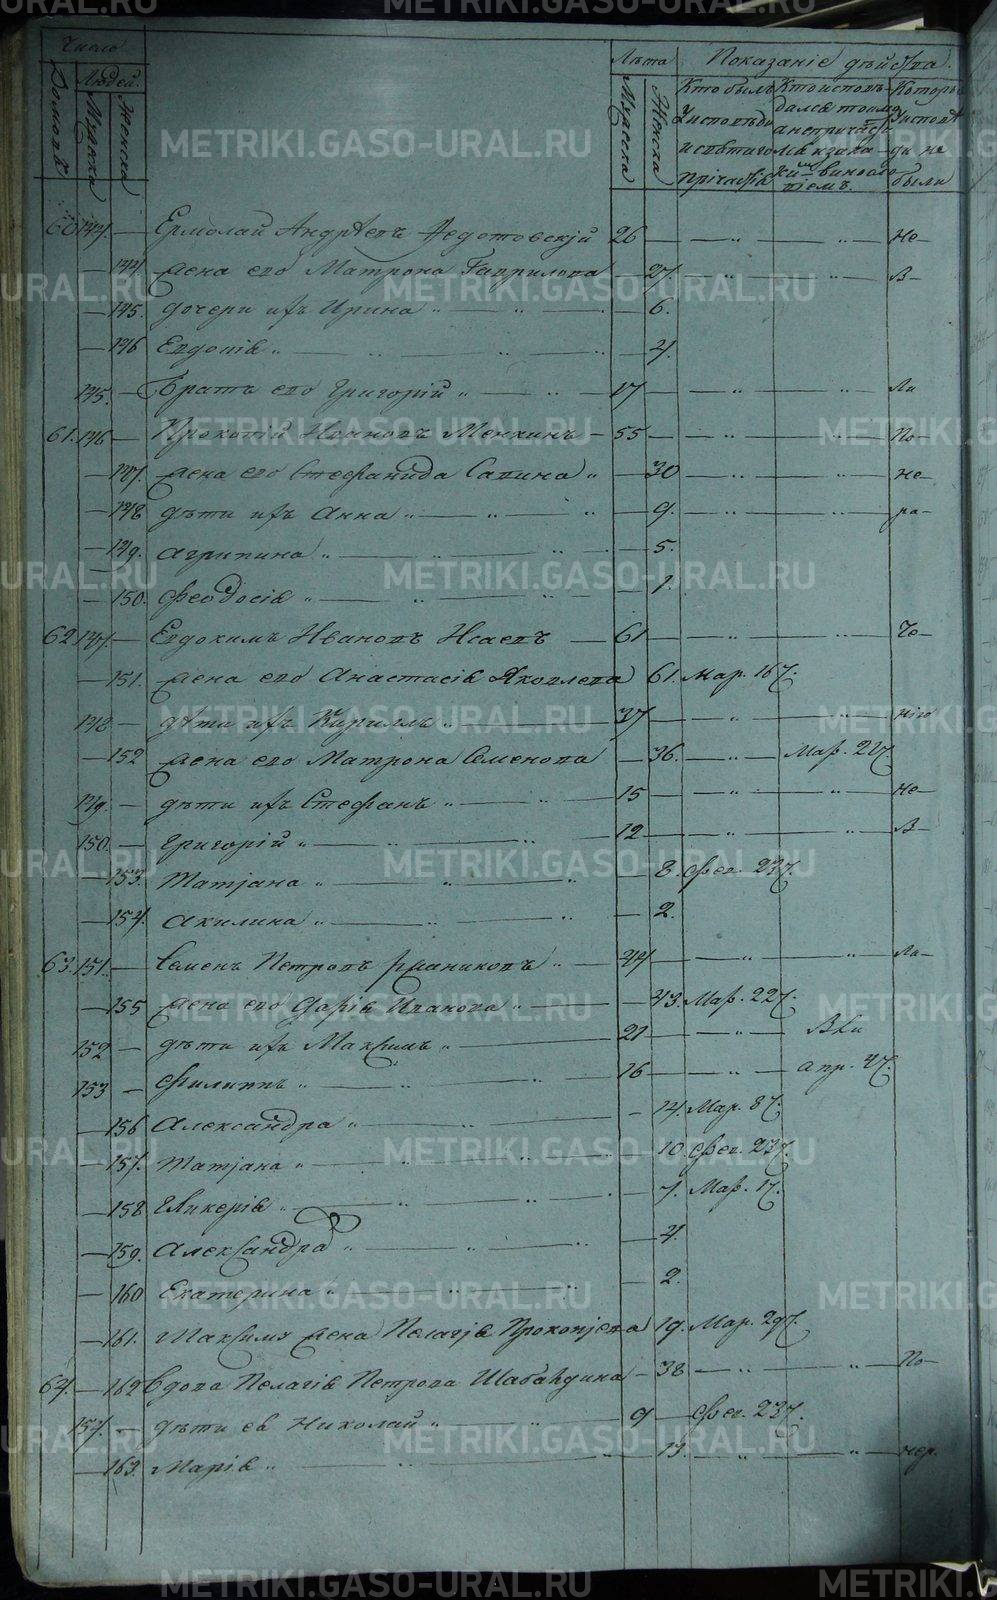 Число
Людей.
Домовъ
Мужска
Женска
Лѣта
Мужска
Женска
Показаніе дѣйства.
Кто былъ у исповѣди и святаго причастія
Кто исповѣдался токмо а не причастился и за какимъ винословіемъ.
Которые у исповѣди не были
60 144 — Ермолай Андреевъ Федотовскій 26 — „ — „ — Не-
— 144. жена его Матрона Гаврилова — 27. — „ — „ — В-
— 145. дочери ихъ Ирина „ — „ — 6.
— 146 Евдокія „ — „ — „ — 4.
145. — Братъ его Григорій „ — „ 17 — „ — „ — Ли
61. 146 — Прокопій 55 — „ — „ — По-
— 147. жена его Стефанида Савина „ — 30 — „ — „ — не-
— 148 дѣти ихъ Анна „ — „ — „ — 9. — „ — „ — ра-
— 149. Агрипина „ — „ — „ — 5.
— 150. Феодосія „ — „ — „ — 1.
62 147. — Евдокимъ Ивановъ Исаевъ — 61 — „ — „ — Че-
— 151. жена его Анастасія Яковлева 61. Мар. 16
148 — дѣти ихъ Кириллъ „ — „ — 37 — „ — „ — нію
— 152 жена его Матрона Семенова — 36. — „ — Мар. 22
149. — дѣти ихъ Стефанъ „ — „ — 15 — „ — „ — Не-
150. — Григорій „ — „ — „ 12 — „ — „ — В-
— 153. Татіана „ — „ — „ — 8. Фев. 23
— 154. Акилина „ — „ — „ — 2.
63. 151. — Семенъ Петровъ „ — 44 — „ — „ — Ли-
— 155 жена его Дарія Иванова „ — 43. Мар. 22
152 — дѣти ихъ Максимъ „ — 21 — „
153 — Филиппъ „ — „ — „ 16 — „ — апр. 4
— 156 Александра „ — „ — 14. Мар. 8
— 157. Татіана „ — „ — „ — 10. Фев. 23
— 158 Гликерія „ — „ — „ — 7. Мар. 1
— 159. Александра „ — „ — „ — 4.
— 160 Екатерина „ — „ — „ — 2.
— 161. Максиму жена Пелагія Прокопіева 19. Мар. 29
64. — 162 Вдова Пелагія Петрова — 38 — „ — „ — По-
154. — дѣти ея Николай „ — „ — 9 — Фев. 23
— 163. Марія „ — „ — „ — 13. — „ — „ — нер.
METRIKI.GASO-URAL.RU